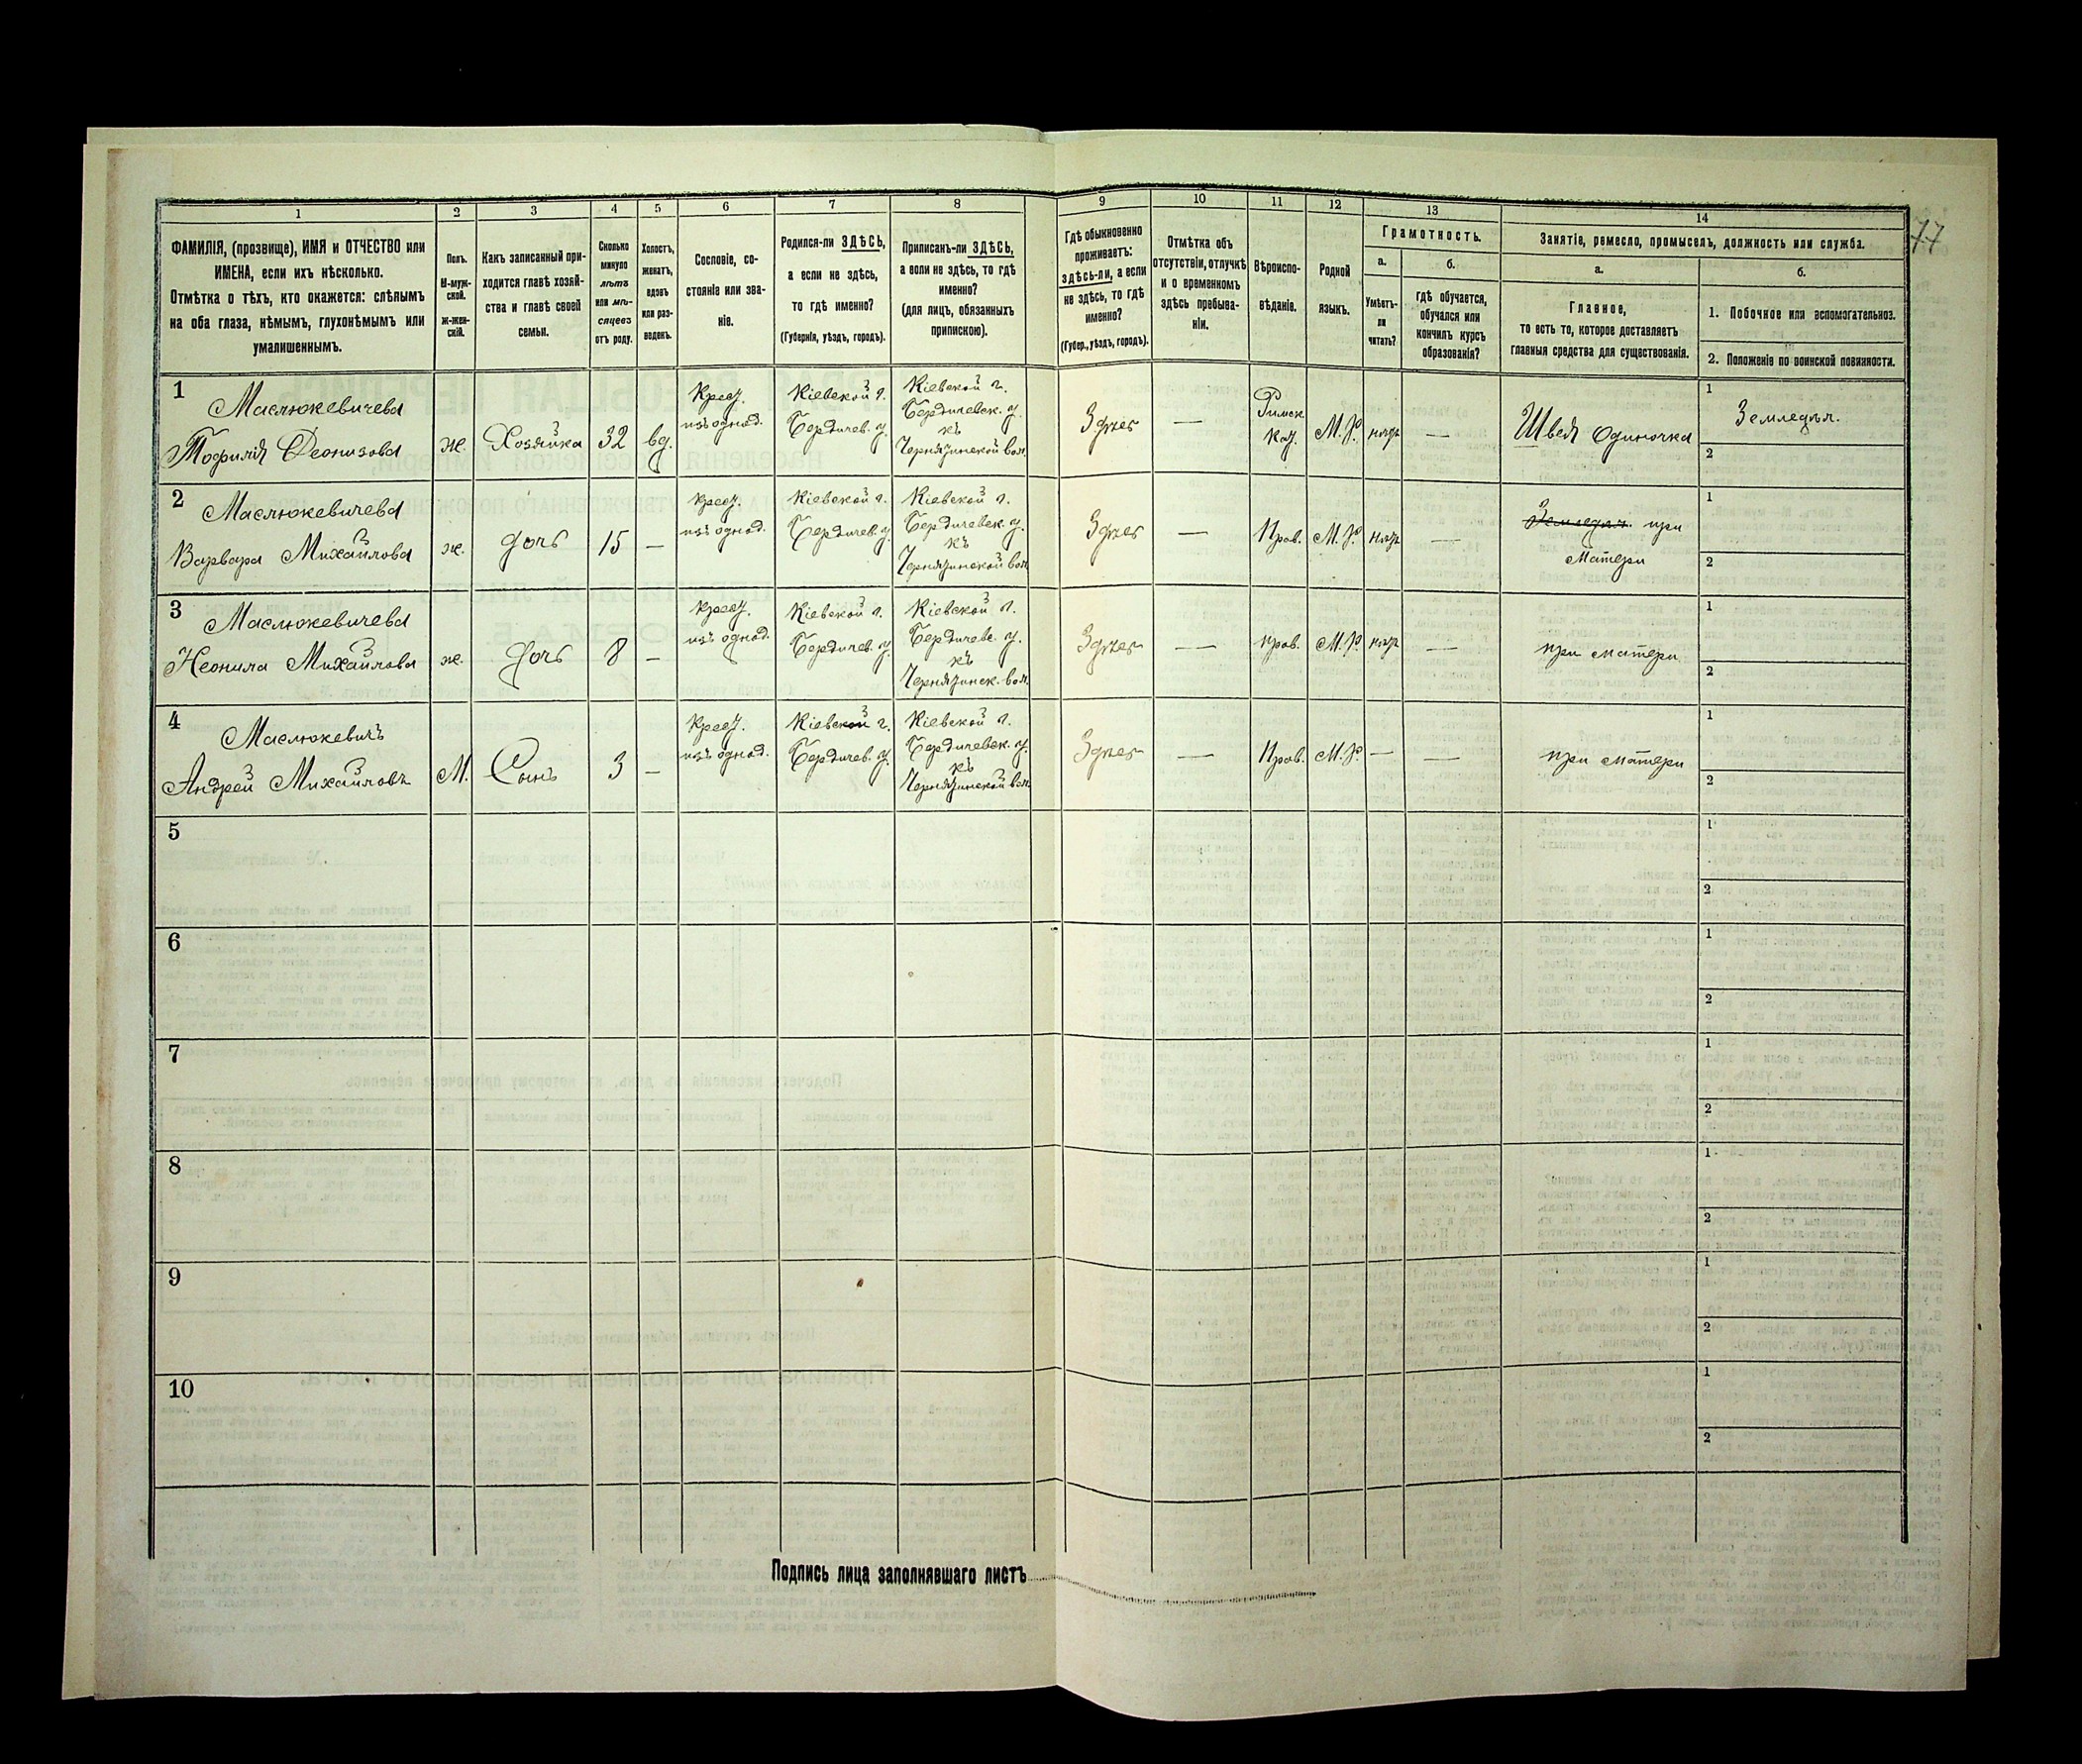 77
1
2
3
4
5
6
7
8
9
10
11
12
13
14
ФАМИЛІЯ, (прозвище), ИМЯ и ОТЧЕСТВО или
ИМЕНА, если ихъ нѣсколько.
Отмѣтка о тѣхъ, кто окажется: слѣпымъ
на оба глаза, нѣмымъ, глухонѣмымъ или
умалишеннымъ.
Полъ.
М-муж-
ской.
Ж-жен-
скій.
Какъ записанный при-
ходится главѣ хозяй-
ства и главѣ своей
семьи.
Сколько
минуло
лѣтъ
или мѣ-
сяцевъ
отъ роду.
Холостъ,
женатъ,
вдовъ
или раз-
веденъ.
Сословіе, со-
стояніе или зва-
ніе.
Родился-ли ЗДѢСЬ,
а если не здѣсь,
то гдѣ именно?
(Губернія, уѣздъ, городъ).
Приписанъ-ли ЗДѢСЬ,
а если не здѣсь, то гдѣ
именно?
(для лицъ, обязанныхъ
припискою).
Гдѣ обыкновенно
проживаетъ:
здѣсь-ли, а если
не здѣсь, то гдѣ
именно?
(Губер., уѣздъ, городъ).
Отмѣтка объ
отсутствіи, отлучкѣ
и о временномъ
здѣсь пребыва-
ніи.
Вѣроиспо-
вѣданіе.
Родной
языкъ.
Грамотность.
а.
Умѣетъ-
ли
читать?
б.
гдѣ обучается,
обучался или
кончилъ курсъ
образованія?
Занятіе, ремесло, промыселъ, должность или служба.
а.
Главное,
то есть то, которое доставляетъ
главныя средства для существованія.
б.
1. Побочное или вспомогательное.
2. Положеніе по воинской повинности.
1
Маслюкевичева
Теофилія Деонизова
ж.
Хозяйка
32
вд.
Крест.
изъ однод.
Кіевской г.
Бердичев. у.
Кіевской г.
Бердичевск. у.
къ
Чернятинской вол.
Здѣсь
—
Римск
кат.
М.Р.
нѣтъ
—
Швея одиночка
1
Земледѣл.
2
2
Маслюкевичева
Варвара Михайлова
ж.
дочь
15
—
Крест.
изъ однод.
Кіевской г.
Бердичев. у.
Кіевской г.
Бердичевск. у.
къ
Чернятинской вол.
Здѣсь
—
Прав.
М.Р.
нѣтъ
—
Земледѣл. при
матери
1
2
3
Маслюкевичева
Неонила Михайлова
ж.
дочь
8
—
Крест.
изъ однод.
Кіевской г.
Бердичев. у.
Кіевской г.
Бердичевс. у.
къ
Чернятинск. вол.
Здѣсь
—
прав.
М.Р.
нѣтъ
—
при матери
1
2
4
Маслюкевичъ
Андрей Михайловъ
М.
Сынъ
3
—
Крест.
изъ однод.
Кіевской г.
Бердичев. у.
Кіевской г.
Бердичевск. у.
къ
Чернятинской вол.
Здѣсь
—
Прав.
М.Р.
—
—
при матери
1
2
5
1
2
6
1
2
7
1
2
8
1
2
9
1
2
10
1
2
Подпись лица заполнявшаго листъ